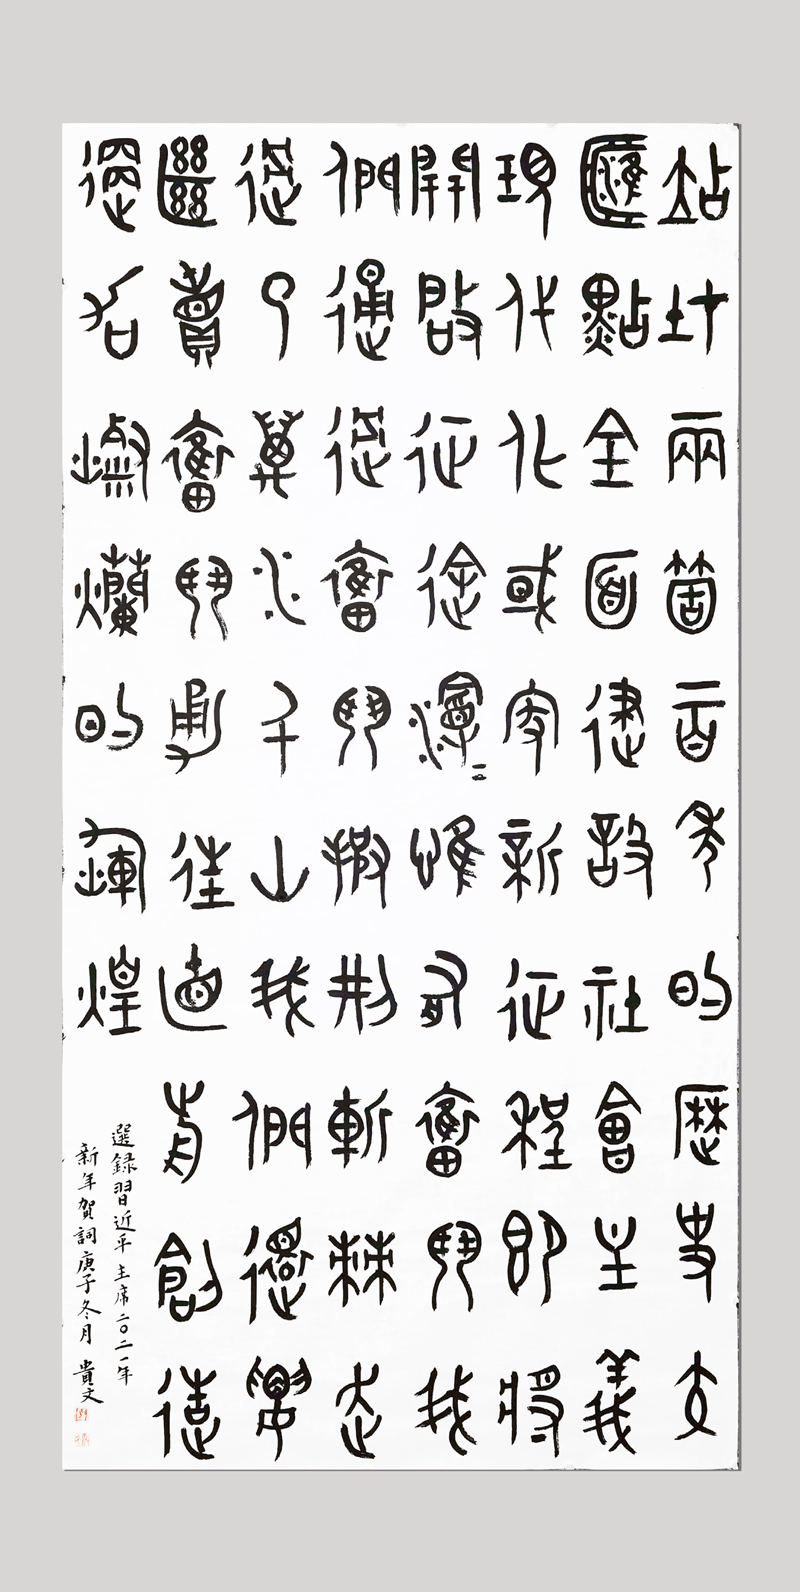 站在兩箇一百年的歷史交
匯點全面建設社會主義
現代化國家新征程即將
開啟征途漫〻惟有奮鬥我
們通過奮鬥披荊斬棘走
過了萬水千山我們還要
繼續奮鬥勇往直前創造
更加燦爛的輝煌
選錄習近平主席二〇二一年
新年賀詞庚子冬月 貴文